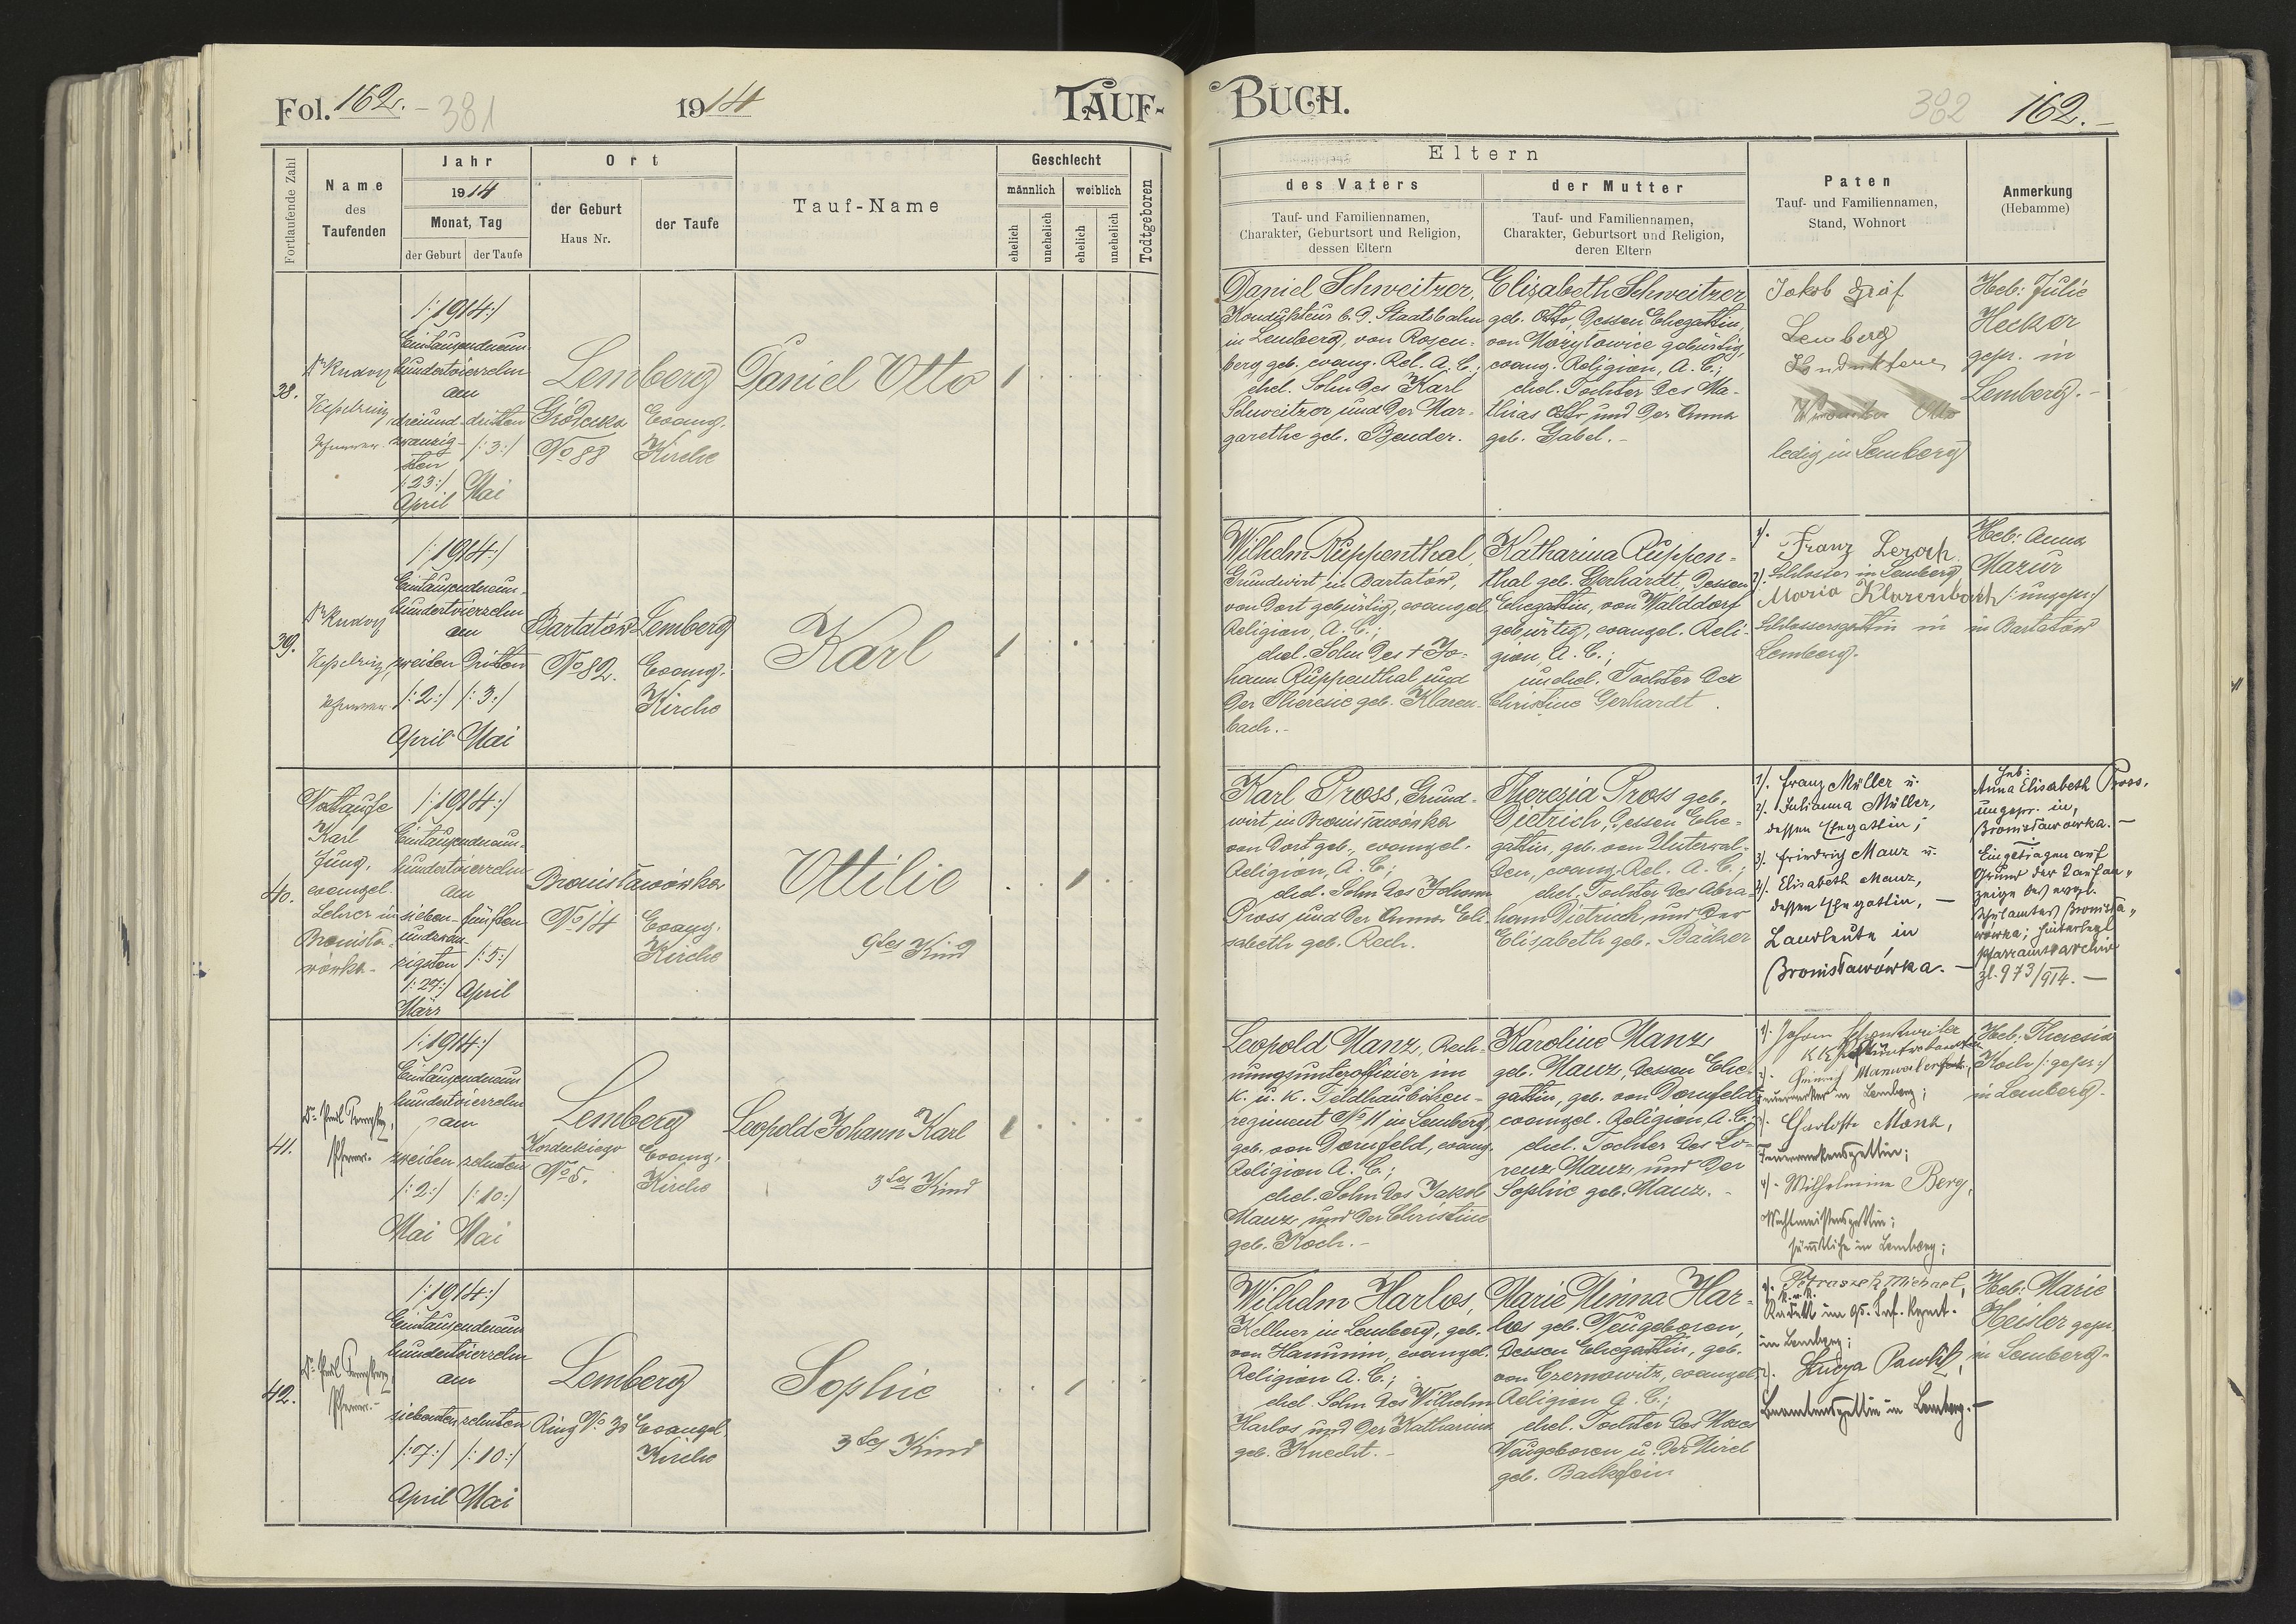 Fol. 162. - 381
1914
TAUF-
Fortlaufende Zahl
Name
des
Taufenden
Jahr
1914
Monat, Tag
der Geburt
der Taufe
Ort
der Geburt
Haus Nr.
der Taufe
Tauf-Name
Geschlecht
männlich
weiblich
ehelich
unehelich
ehelich
unehelich
Todtgeboren
38.
/:1914:/
Eintausendneun-
hundertvierzehn
am
dreiund-
zwanzig-
sten
/:23:/
April
dritten
/:3:/
Mai
Lemberg
Gródecka
No 88
Evang.
Kirche
Daniel Otto
39.
/:1914:/
Eintausendneun-
hundertvierzehn
am
zweiten
/:2:/
April
dritten
/:3:/
Mai
Bartatów
No 82.
Lemberg
Evang.
Kirche
Karl
40.
Nottaufe
Karl
Jung,
evangel.
Lehrer in
Bronisła-
wówka-
/:1914:/
Eintausendneun-
hundertvierzehn
am
sieben-
undzwan-
zigsten
/:27:/
März
fünften
/:5:/
April
Bronisławówka
No 14
Evang.
Kirche
Ottilie
9tes Kind
41.
/:1914:/
Eintausendneun
hundertvierzehn
am
zweiten
/:2:/
Mai
zehnten
/:10:/
Mai
Lemberg
No 5.
Evang.
Kirche
Leopold Johann Karl
3tes Kind
42.
/:1914:/
Eintausendneun
hundertvierzehn
am
siebenten
/:7:/
April
zehnten
/:10:/
Mai
Lemberg
Ring No 30
Evangel.
Kirche
Sophie
3tes Kind
BUCH.
382 162.-
Eltern
des Vaters
Tauf- und Familiennamen,
Charakter, Geburtsort und Religion,
dessen Eltern
der Mutter
Tauf- und Familiennamen,
Charakter, Geburtsort und Religion,
deren Eltern
Paten
Tauf- und Familiennamen,
Stand, Wohnort
Anmerkung
(Hebamme)
Daniel Schweitzer,
Kondukteur b. d. Staatsbahn
in Lemberg, von Rosen-
berg geb. evang. Rel. A. C.;
ehel. Sohn des Karl
Schweitzer und der Mar-
garethe geb. Bender.
Elisabeth Schweitzer
geb. Otto, dessen Ehegattin,
von gebürtig,
evang. Religion, A. C.;
ehel. Tochter des Ma-
thias Otto und der Anna
geb. Gabel.-
Jakob Gräf
Lemberg
Kondukteur
Otto
ledig in Lemberg
Heb: Julie
Hecker
gepr. in
Lemberg.-
Wilhelm Ruppenthal,
Grundwirt in Bartatów,
von dort gebürtig, evangel.
Religion, A. C.;
ehel. Sohn des + Jo-
hann Ruppenthal und
der Theresie geb. Klaren-
bach.-
Katharina Ruppen-
thal geb. Gerhardt, dessen
Ehegattin, von Walddorf
gebürtig, evangel. Reli-
gion, A. C.;
unehel. Tochter der
Christine Gerhardt.
1). Franz Lerach
Schlosser in Lemberg
2). Maria Klarenbach
Schlossersgattin in
Lemberg.
Heb: Anna
Mazur
/:ungepr:/
in Bartatów
Karl Pross, Grund-
wirt in Bronisławówka
von dort geb., evangel.
Religion, A. C;
ehel. Sohn des Johann
Pross und der Anna Eli-
sabeth geb. Rech.
Theresia Pross geb.
Dietrich, dessen Ehe-
gattin, geb. von Unterwal-
den, evang. Rel. A. C.;
ehel. Tochter des Abra-
ham Dietrich und der
Elisabeth geb. Bäcker
1). Franz Müller u.
2). Julianna Müller,
dessen Ehegattin;
3). Friedrich Manz u.
4). Elisabeth Manz,
dessen Ehegattin, -
Landleute in
Bronisławówka. -
Heb:
Anna Elisabeth Pross,
ungepr. in,
Bronisławówka. -
Eingetragen auf
Grund der Taufan-
zeige des evgl.
Schulamtes Bronisła-
wówka; hinterlegt
Pfarramtsarchiv
Zl. 973/914. -
Leopold Manz, Rech-
nungsunteroffizier im
k. u. k. Feldhaubitzen-
regiment No 11 in Lemberg,
geb. von Dornfeld, evang.
Religion A. C.;
ehel. Sohn des Jakob
Manz und der Christine
geb. Koch.-
Karoline Manz,
geb. Manz, dessen Ehe-
gattin, geb. von Dornfeld,
evangel. Religion, A. C.;
ehel. Tochter des Lo-
renz Manz und der
Sophie geb. Manz.-
in Lemberg;
3). Charlotte Manz,
4). Wilhelmine Berg,
Wachtmeistersgattin;
sämtliche in Lemberg;
Heb: Theresia
Koch /:gepr:/
in Lemberg.
Wilhelm Harlos,
Kellner in Lemberg, geb.
von Hanunin, evangel.
Religion A. C.;
ehel. Sohn des Wilhelm
Harlos und der Katharina
geb. Knecht.-
Marie Minna Har-
los geb. Neugeboren,
dessen Ehegattin, geb.
von Czernowitz, evangel.
Religion A. C.;
ehel. Tochter des Moses
Neugeboren u. der Mirel
geb.
1). Petraszek Michael,
k. u. k.
Kadett im 95. Inf. Regmt.
in Lemberg;
2). Pawlik,
Beamtensgattin in Lemberg.-
Heb: Marie
Heisler gepr.
in Lemberg-